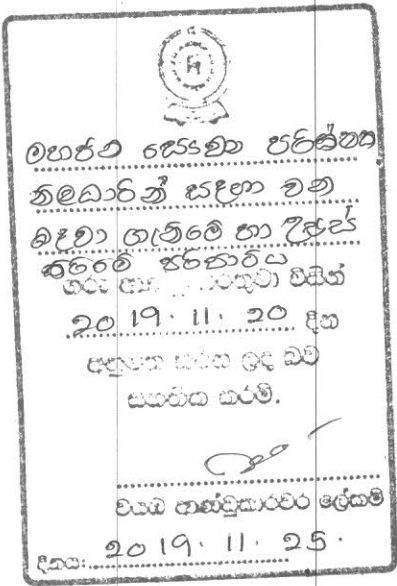 මහජන සේවා පරිශීලක
නිලධාරින් සඳහා වන
බඳවා ගැනීමේ හා උසස්
කිරීමේ පරිපාටිය
ගරු විසින්
2019.11.20 දින
අනුමත කරන ලද බව
සහතික කරමි.
වයඹ ආණ්ඩුකාරවර ලේකම්
දිනය: 2019.11.25.